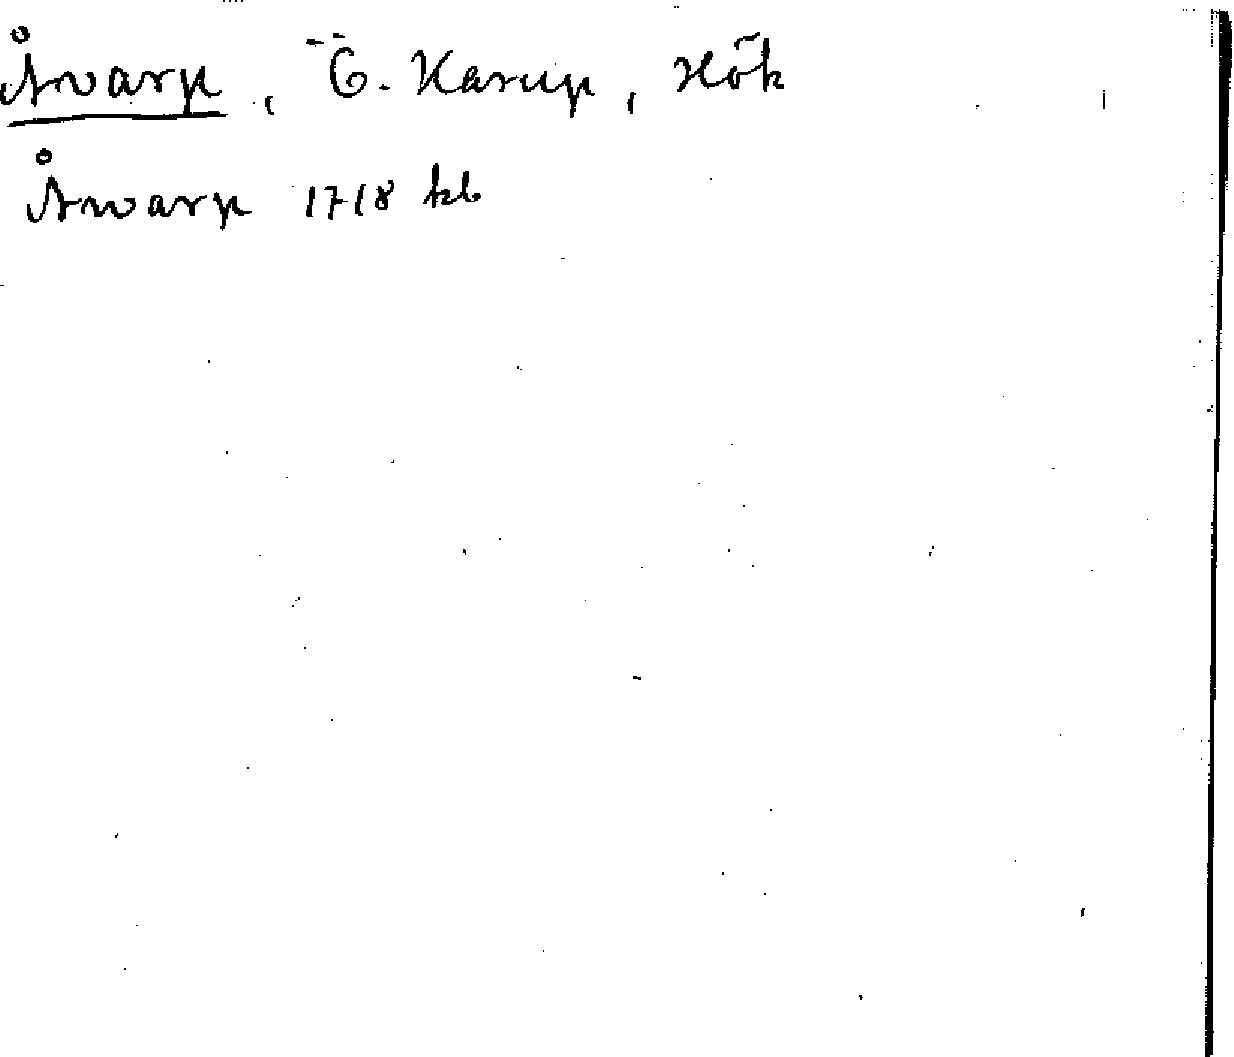 Åvarp, Ö. Karup, Hök
Åwarp 1718 kb